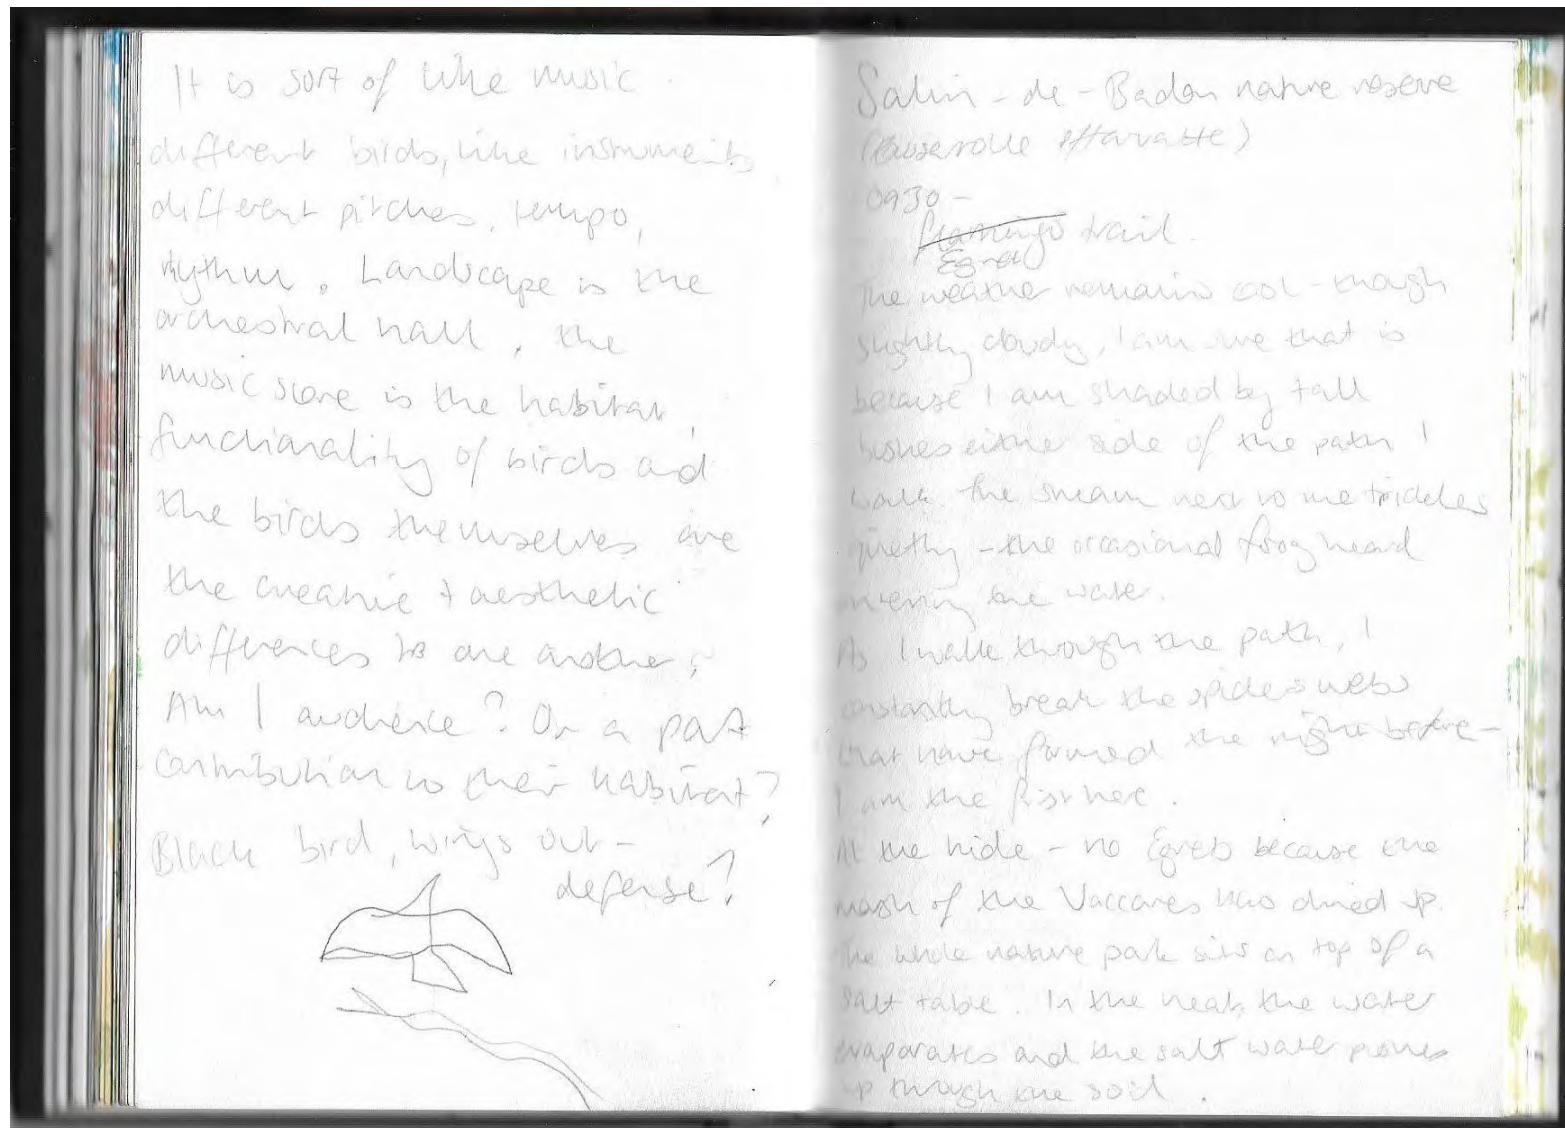 It is sort of like music.
different birds, like instruments
different pitches, tempo,
rhythm. Landscape is the
orchestral hall, the
music score is the habitat,
functionality of birds and
the birds themselves are
the creative + aesthetic
differences to one another,
Am I audience? Or a part
contribution to their habitat?
Black bird, wings out -
defense?
Salin-de-Badon nature reserve
0930 -
flamingo trail.
Egret
The weather remains cool - though
slightly cloudy, I am sure that is
because I am shaded by tall
bushes either side of the path I
walk. The stream next to me trickles
quietly - the occasional frog heard
entering the water.
As I walk through the path, I
constantly break the spiders webs
that have formed the night before -
I am the first here.
At the hide - no Egrets because the
marsh of the Vaccares has dried up.
The whole nature park sits on top of a
salt table. In the heat, the water
evaporates and the salt water moves
up through the soil.